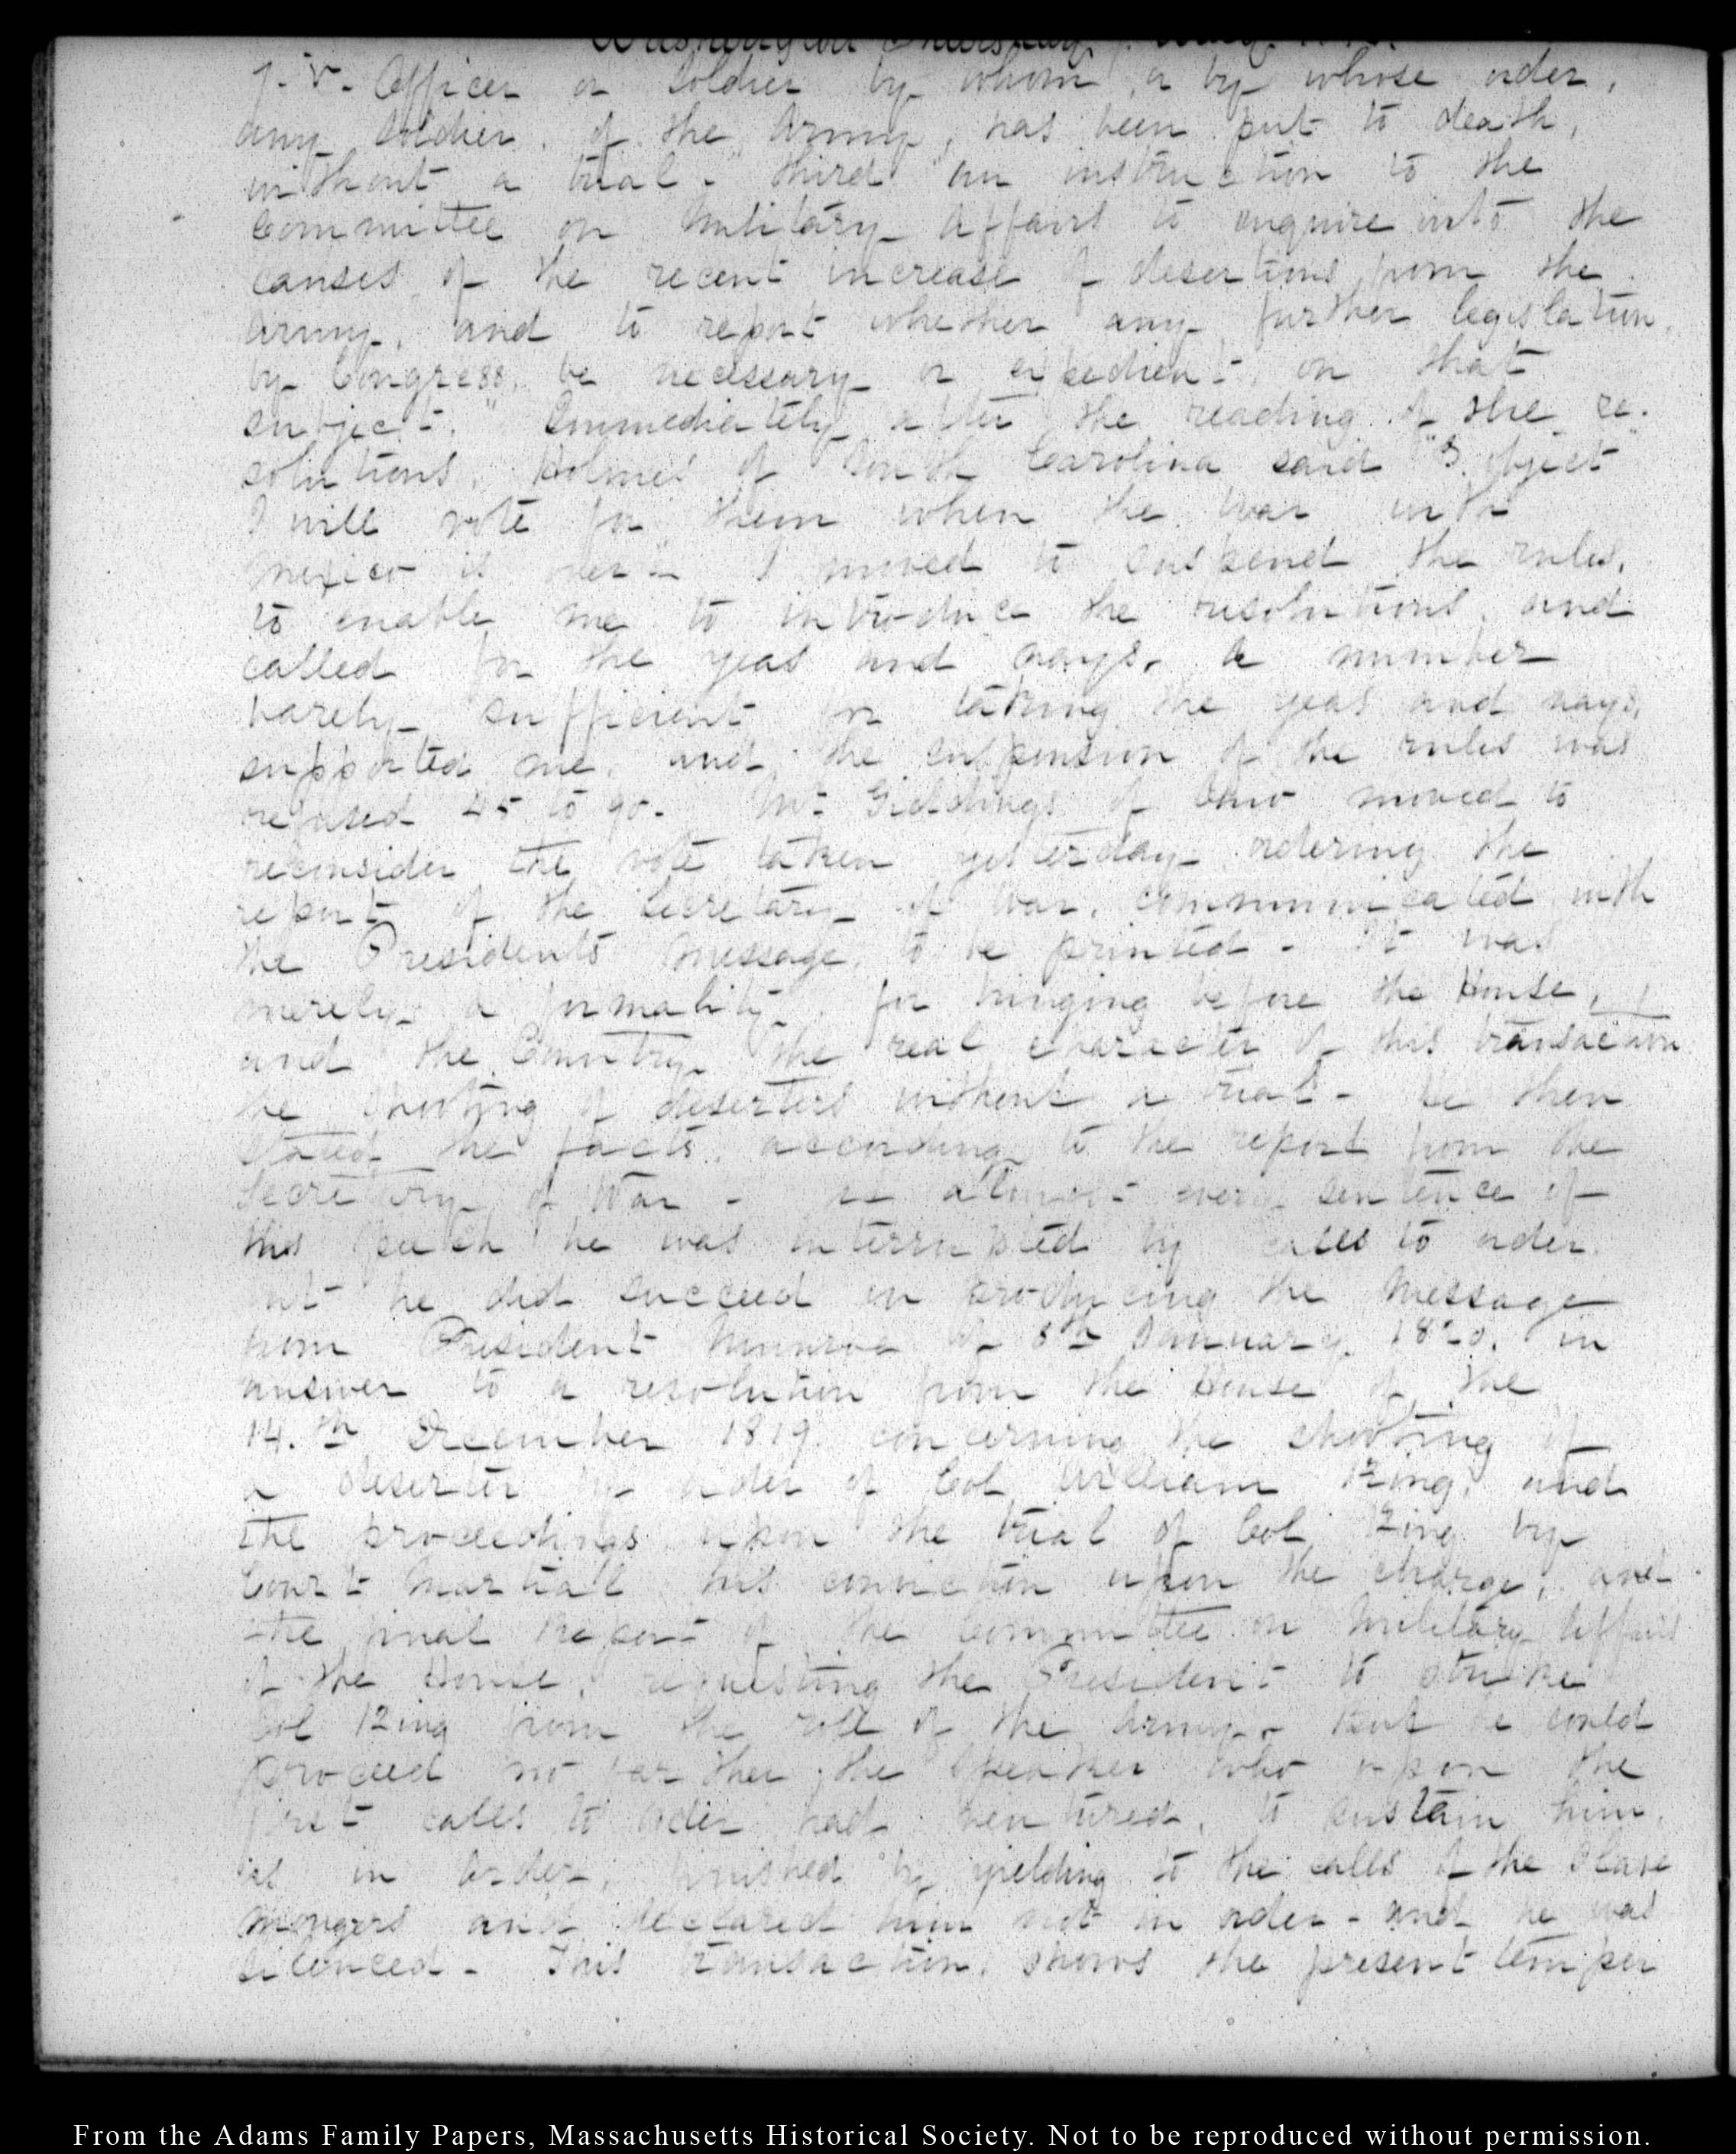 Washington Thursday
7. V. Officer or Soldier by whom, or by whose order,
any Soldier of the Army, has been put to death,
without a trial. Third "an instruction to the
Committee on Military Affairs to enquire into the
causes of the recent increase of desertions from the
Army, and to report whether any further legislation,
by Congress, be necessary or expedient, on that
subject." Immediately after the reading of the re-
solutions, Holmes of South Carolina said "I object
I will vote for them when the War with
Mexico is over" I moved to suspend the rules,
to enable me to introduce the resolutions, and
called for the yeas and nays. A number
barely sufficient for taking the yeas and nays,
supported me, and the suspension of the rules was
refused 45 to 90. Mr. Giddings of Ohio moved to
reconsider the vote taken yesterday ordering the
report of the Secretary of War, communicated with
the Presidents message, to be printed - It was
merely a formality for bringing before the House,
and the Country the real character of this transaction
the shooting of deserters without a trial - He then
stated the facts, according to the report from the
Secretary of War - at almost every sentence of
this speech he was interrupted by calls to order.
but he did succeed in producing the Message
from President Monroe of 5th January 1820. in
answer to a resolution from the House of the
14.th December 1819. concerning the shooting of
a deserter by order of Col William King, and
the proceedings upon the trial of Col. King by
Court Martial his conviction upon the charge, and
the final Report of the Committee on Military Affairs
of the House, requesting the President to strike
Col King from the roll of the Army. But he could
proceed no farther, the Speaker who upon the
first calls to order had ventured, to sustain him,
as in order, finished by yielding to the calls of the Slave
mongers and declared him not in order - and he was
silenced - This transaction, shows the present temper
From the Adams Family Papers, Massachusetts Historical Society. Not to be reproduced without permission.